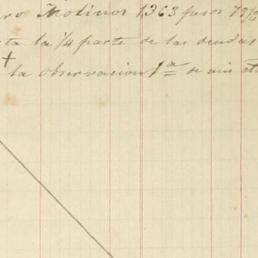 ro Molinos 1,363 pesos 75/
ta la 1/4 parte de las deudas
+
la observacion 1ª de mis at